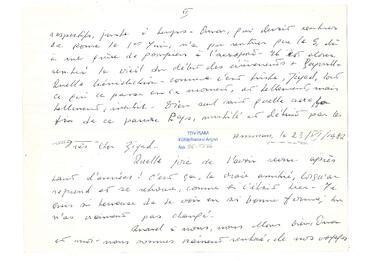 II
respectifs, parte à Leopo- Omar, qui devait rentrer
de Rome le 1er Juin, n'a pu rentrer que le 5, dû
à une grève de pompiers à l'aéroport
rentré la veille du début des événements
Quelle bénédiction - comme c'est triste, Ziyad, tout
ce qui se passe en ce moment, et tellement mais
tellement, inutile. Dieu seul sait quelle sera la
fin de ce pauvre Pays, mutilé et détruit par les
TDV İSAM
Kütüphanesi Arşivi
No
Amman, le 23/VI/1982
Très cher Ziyad.
Quelle joie de t'avoir revu après
tant d'années! C'est ça, la vraie amitié, lorsqu'on
reprend et se retrouve, comme si c'était hier. Je
suis si heureuse de te voir en si bonne forme; tu
n'as vraiment pas changé.
Quand à nous, nous allons bien, Omar
et moi - nous sommes vraiment rentrés, de nos voyages